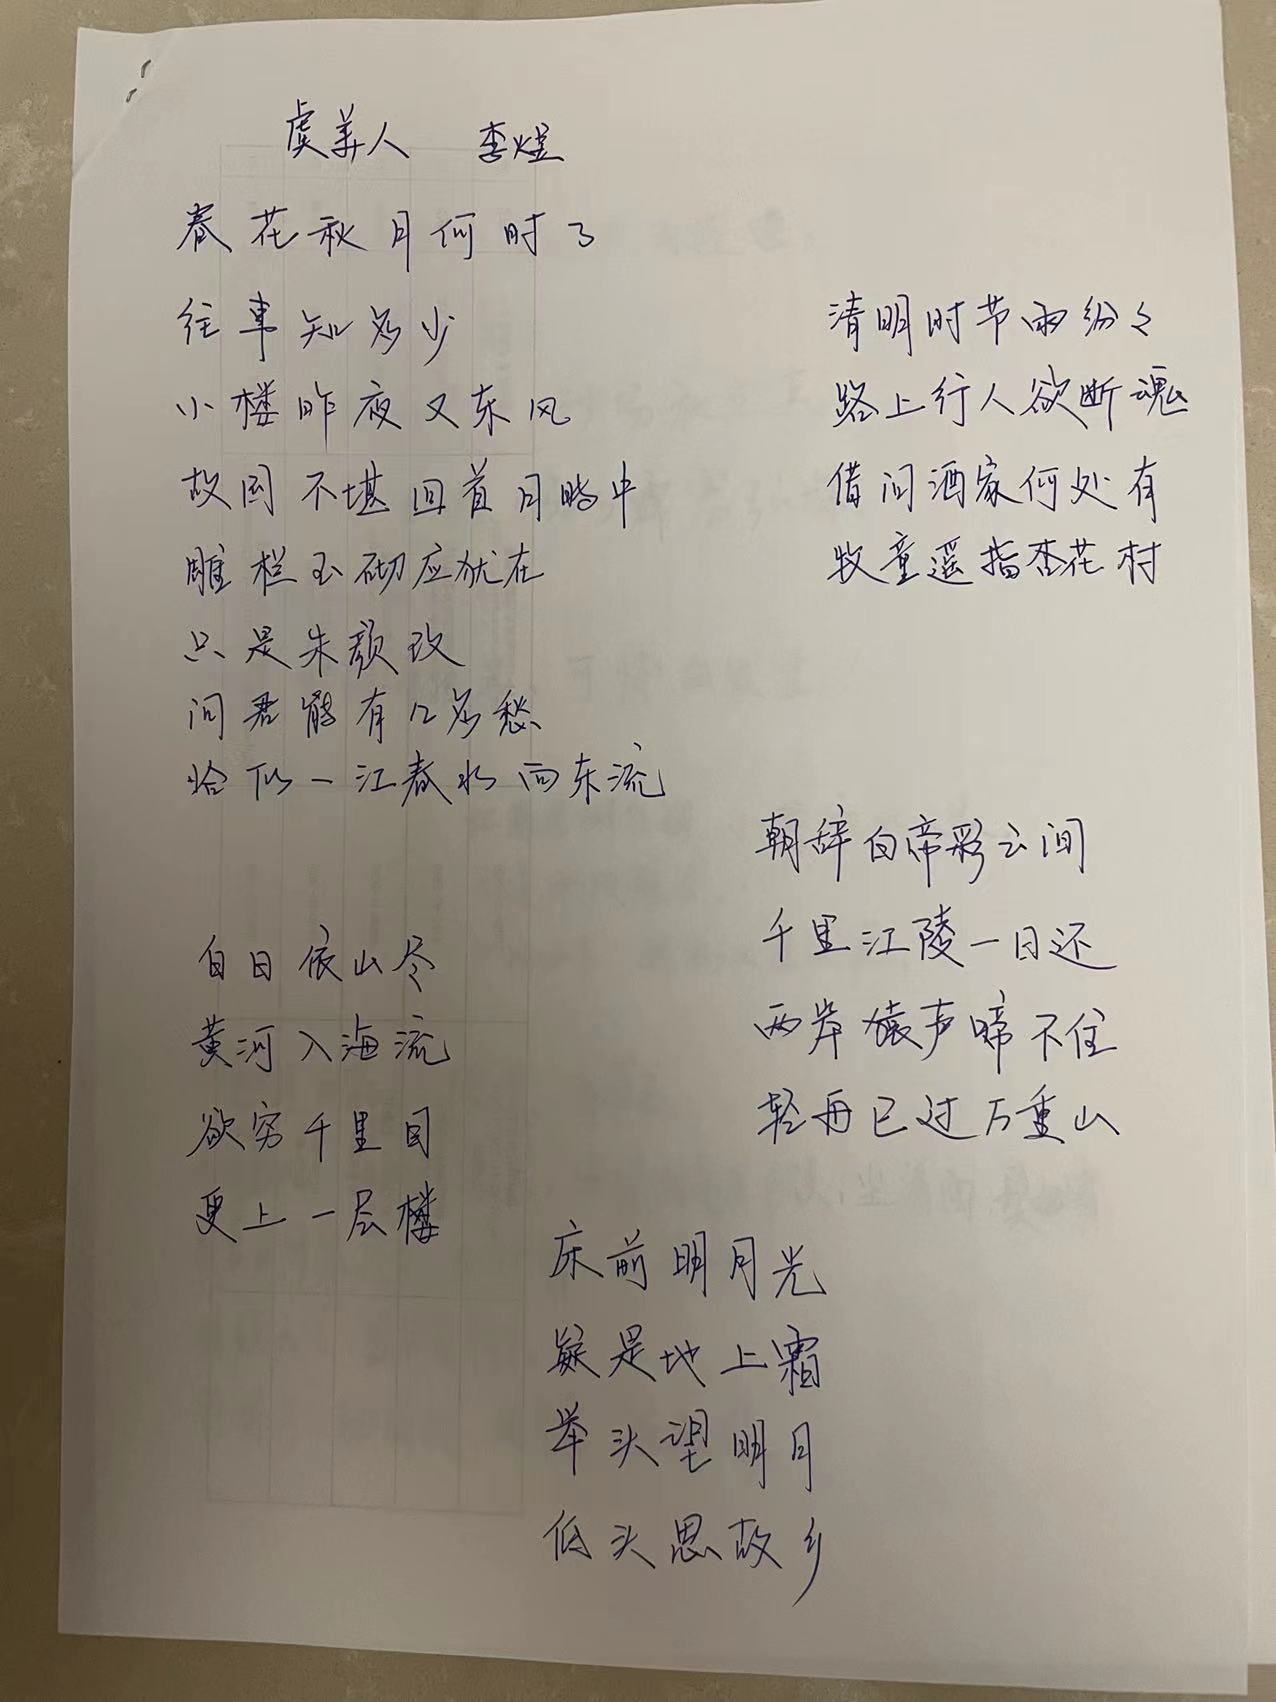 虞美人 李煜
春花秋月何时了
往事知多少
小楼昨夜又东风
故国不堪回首月明中
雕栏玉砌应犹在
只是朱颜改
问君能有几多愁
恰似一江春水向东流
清明时节雨纷々
路上行人欲断魂
借问酒家何处有
牧童遥指杏花村
白日依山尽
黄河入海流
欲穷千里目
更上一层楼
朝辞白帝彩云间
千里江陵一日还
两岸猿声啼不住
轻舟已过万重山
床前明月光
疑是地上霜
举头望明月
低头思故乡